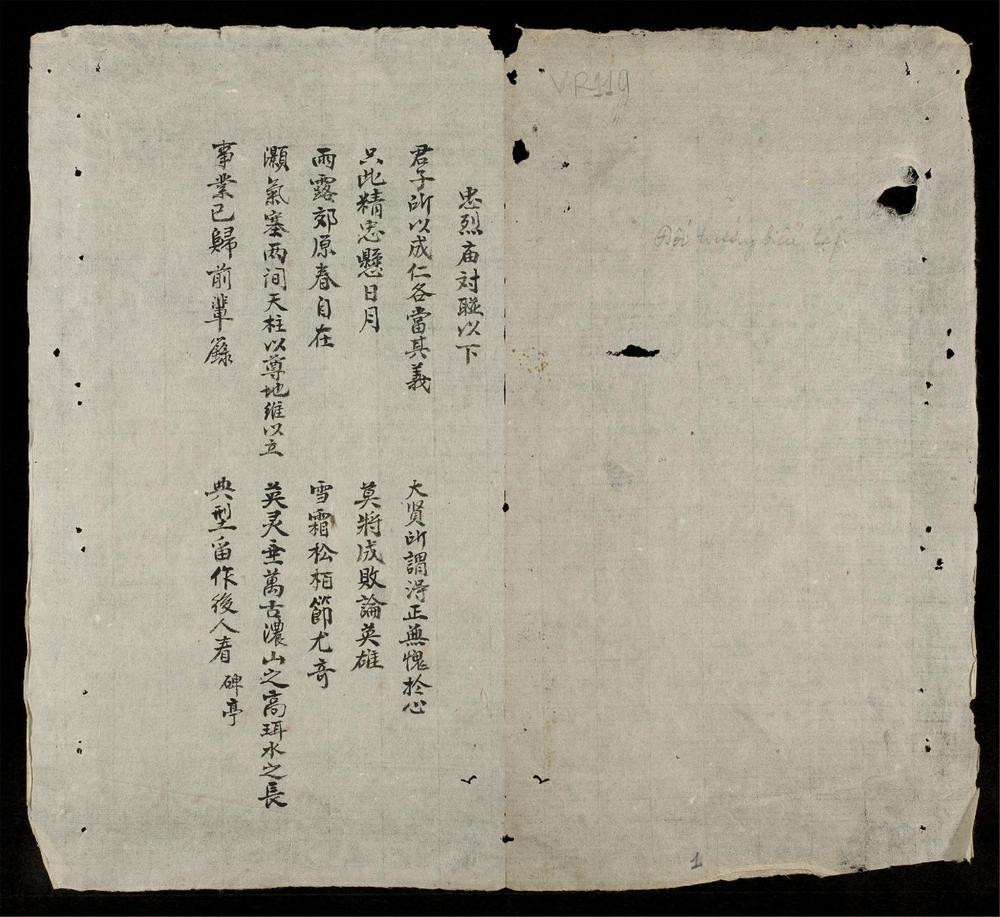 VR119
1
忠烈庙对聮以下
君子所以成仁各當其義
大贤所謂淂正無愧於心
只此精忠懸日月
莫將成敗論英雄
雨露郊原春自在
雪霜松栢節尤奇
灝氣塞两间天柱以尊地维以立
英灵垂萬古濃山之高珥水之長
事業已歸前輩錄
典型留作後人看
碑亭